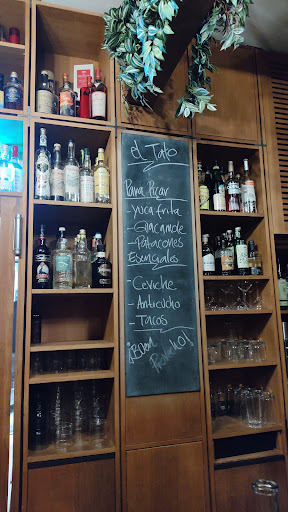 el Tato
Para Picar
- yuca frita
- Guacamole
- Patacones
Esenciales
- Ceviche
- Anticucho
- Tacos
¡Buen
Provecho!